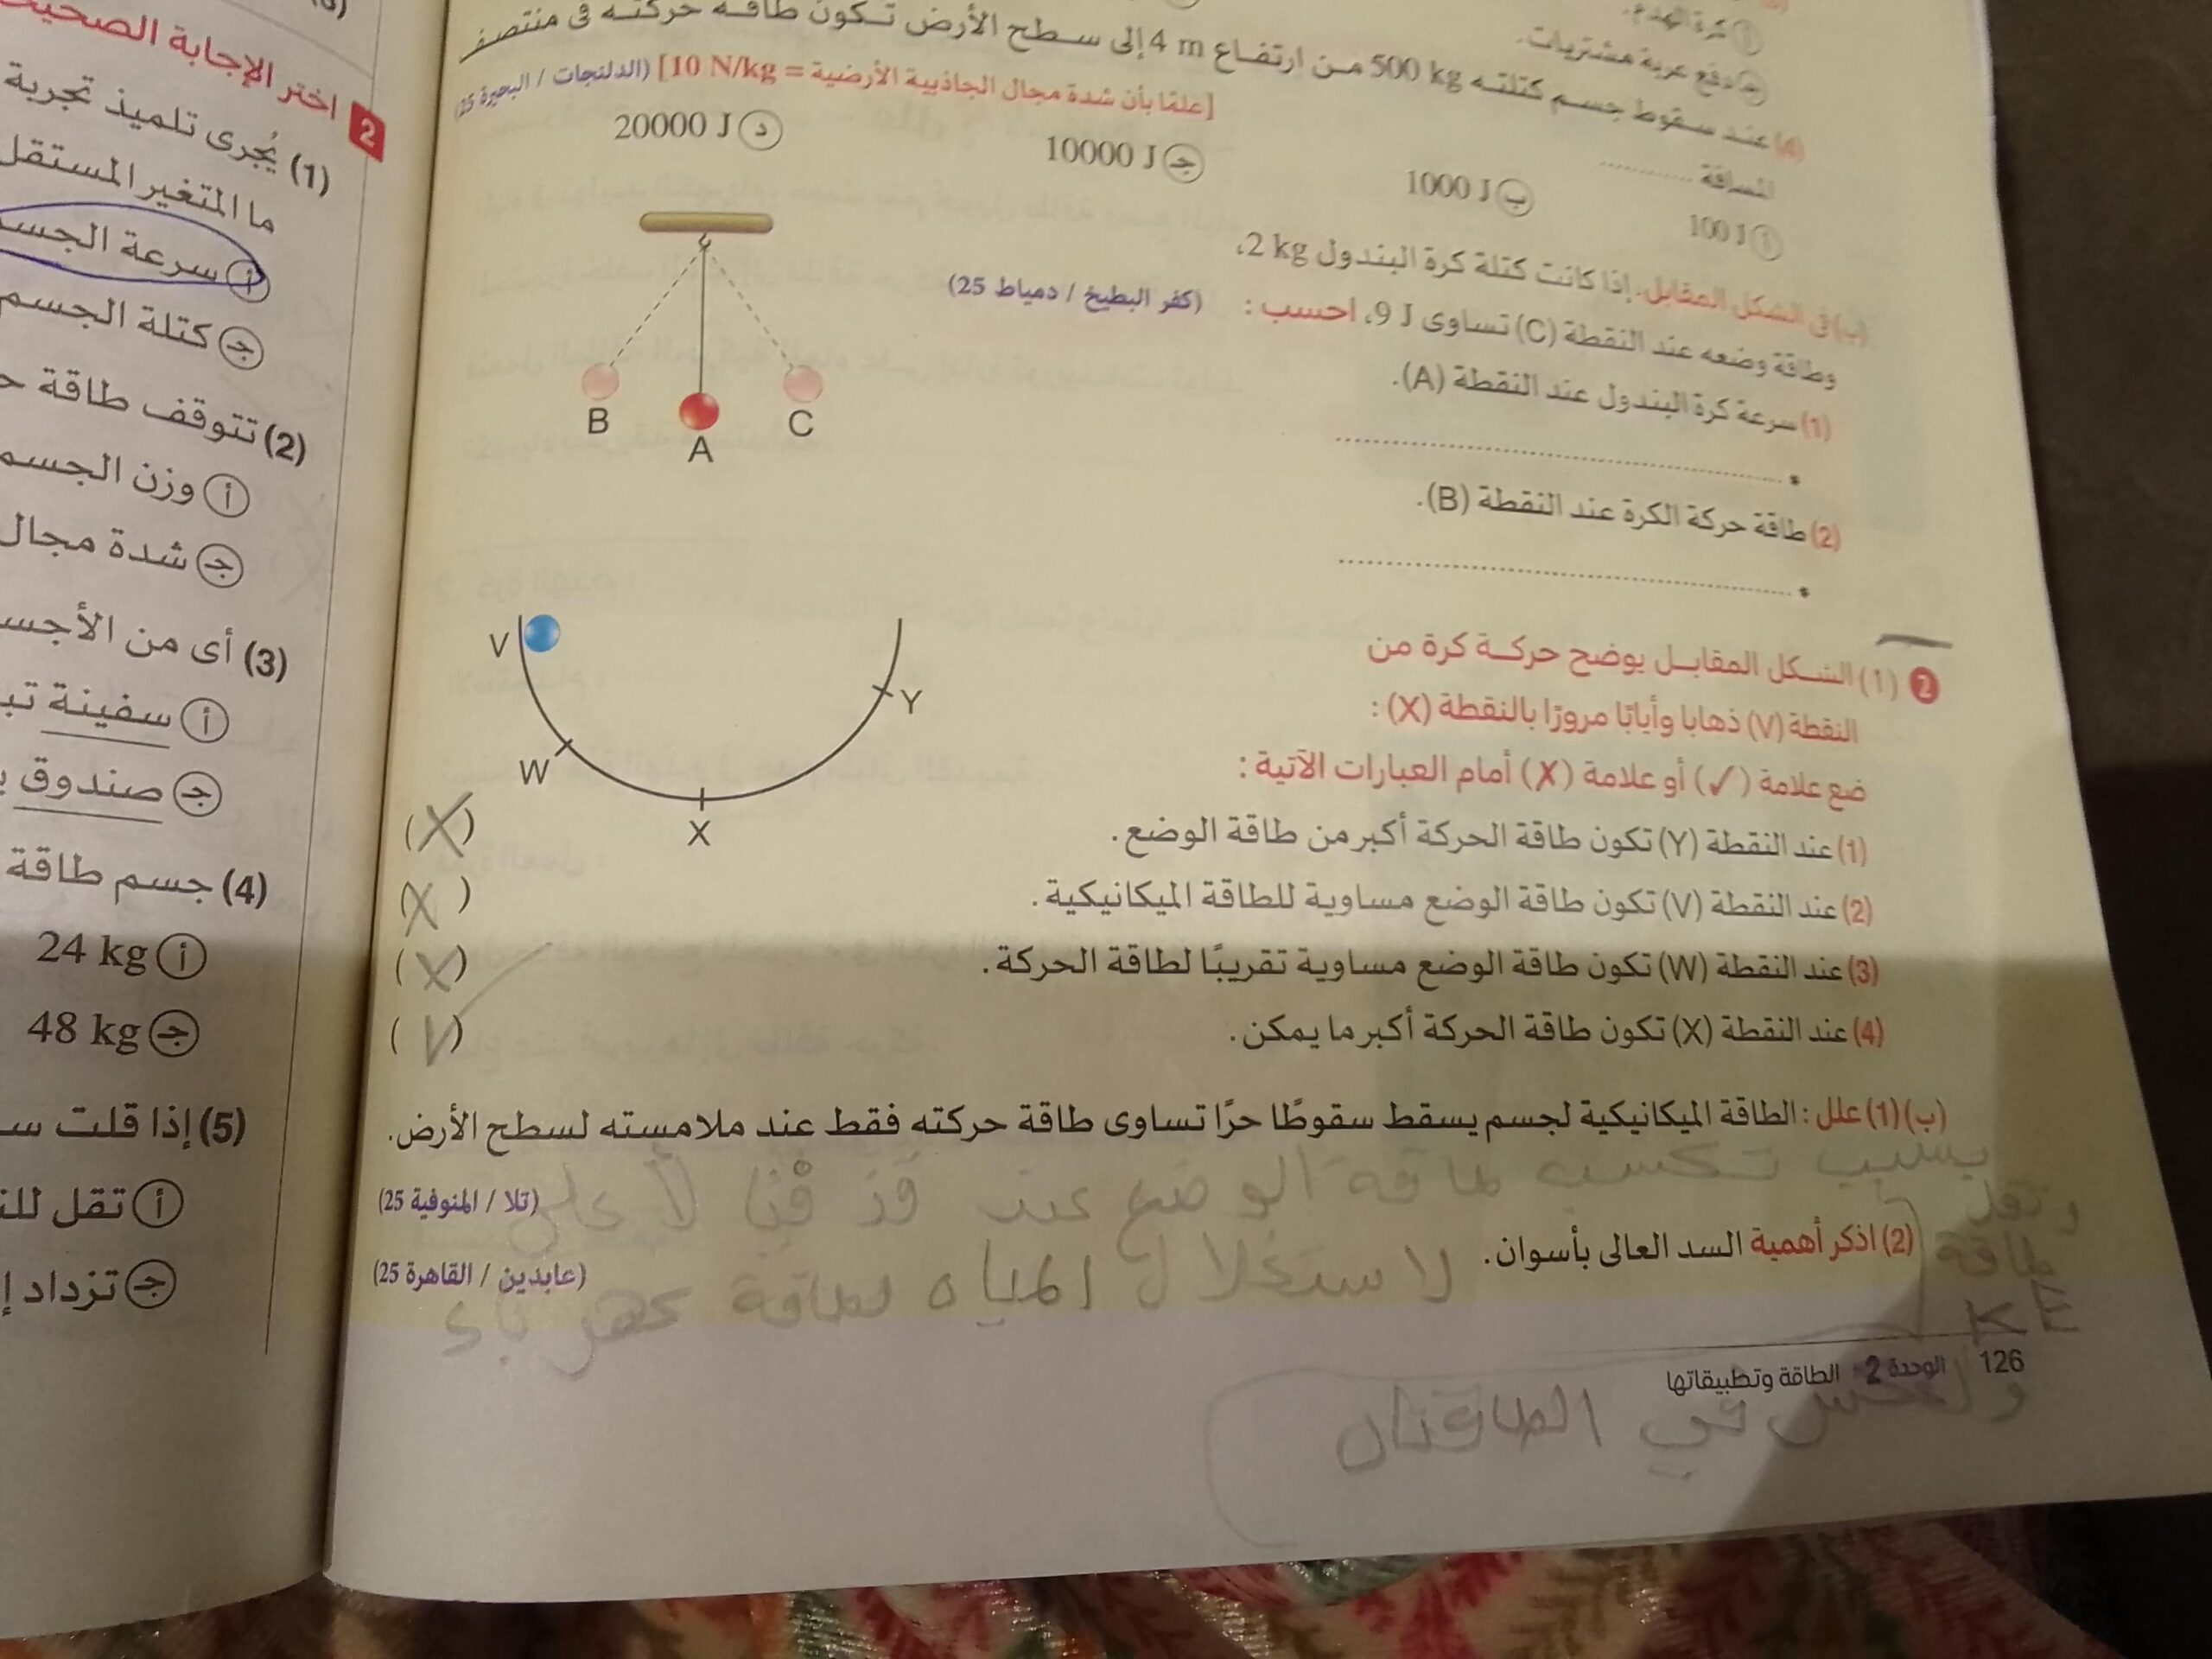 كرة الهدم.
ج دفع عربة مشتريات.
(4) عند سقوط جسم كتلته 500 kg من ارتفاع 4 m إلى سطح الأرض تكون طاقة حركته فى منتصف
المسافة ..........
[علمًا بأن شدة مجال الجاذبية الأرضية = 10 N/kg] (الدلنجات / البحيرة 25)
أ 100 J
ب 1000 J
ج 10000 J
د 20000 J
(ب) فى الشكل المقابل، إذا كانت كتلة كرة البندول 2 kg،
وطاقة وضعه عند النقطة (C) تساوى 9 J، احسب : (كفر البطيخ / دمياط 25)
(1) سرعة كرة البندول عند النقطة (A).
(2) طاقة حركة الكرة عند النقطة (B).
B
A
C
2 (1) الشكل المقابل يوضح حركة كرة من
النقطة (V) ذهابا وأيابًا مرورًا بالنقطة (X) :
V
W
X
Y
ضع علامة (✓) أو علامة (X) أمام العبارات الآتية :
(1) عند النقطة (Y) تكون طاقة الحركة أكبر من طاقة الوضع. (X)
(2) عند النقطة (V) تكون طاقة الوضع مساوية للطاقة الميكانيكية. (X)
(3) عند النقطة (W) تكون طاقة الوضع مساوية تقريبًا لطاقة الحركة. (X)
(4) عند النقطة (X) تكون طاقة الحركة أكبر ما يمكن. (✓)
(ب) (1) علل : الطاقة الميكانيكية لجسم يسقط سقوطًا حرًا تساوى طاقة حركته فقط عند ملامسته لسطح الأرض.
بسبب تكسب طاقة الوضع عند قذفنا لأعلى
وتقل
طاقة
KE
(تلا / المنوفية 25)
(2) اذكر أهمية السد العالى بأسوان. (عابدين / القاهرة 25)
لاستغلال المياه لطاقة كهرباء
126 الوحدة 2 الطاقة وتطبيقاتها
والعكس في الطاقتان
2 اختر الإجابة الصحيح
(1) يُجرى تلميذ تجربة
ما المتغير المستقل
أ سرعة الجسم
ج كتلة الجسم
(2) تتوقف طاقة
أ وزن الجسم
ج شدة مجال
(3) أى من الأجس
أ سفينة
ج صندوق
(4) جسم طاقة
أ 24 kg
ج 48 kg
(5) إذا قلت
أ تقل
ج تزداد